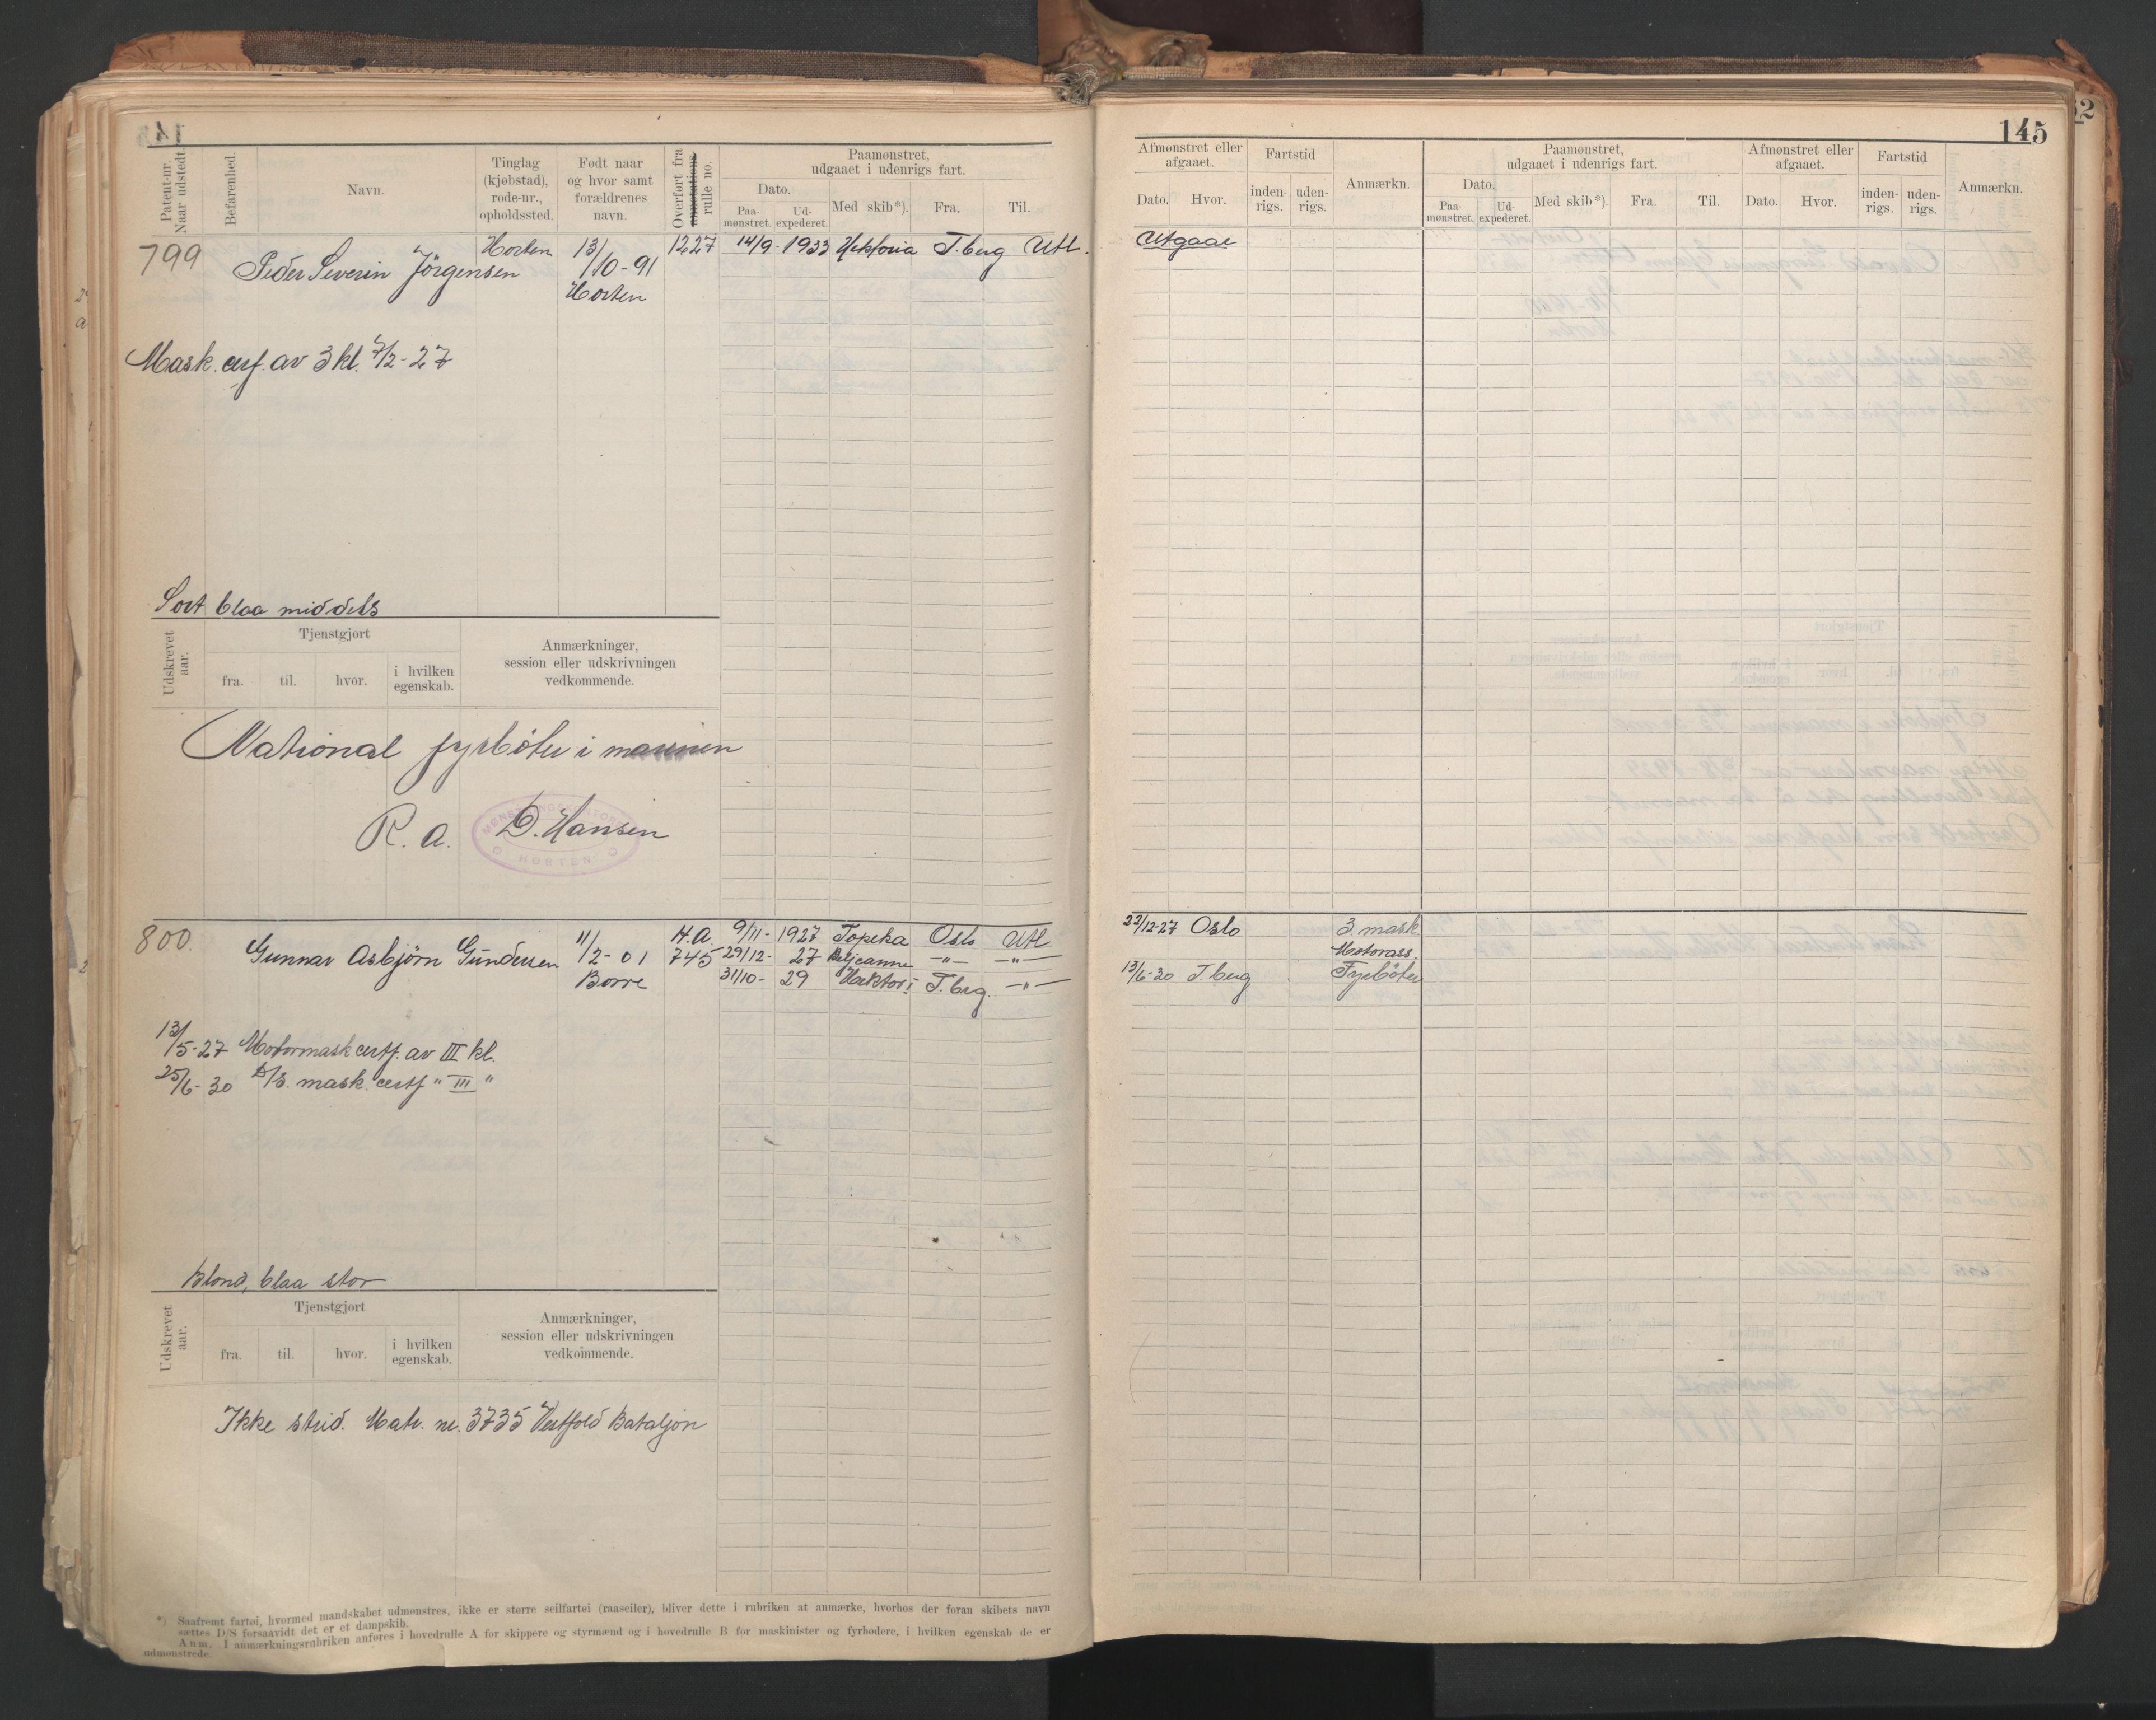 145
52
Patent-nr. Naar udstedt.
Befarenhed.
Navn.
Tinglag (kjøbstad), rode-nr., opholdssted.
Født naar og hvor samt forældrenes navn.
Overført fra annotations rulle no.
Paamønstret, udgaaet i udenrigs fart.
Dato.
Paa-mønstret.
Ud-expederet.
Med skib*).
Fra.
Til.
Afmønstret eller afgaaet.
Dato.
Hvor.
Fartstid
inden-rigs.
uden-rigs.
Anmærkn.
Paamønstret, udgaaet i udenrigs fart.
Dato.
Paa-mønstret.
Ud-expederet.
Med skib*).
Fra.
Til.
Afmønstret eller afgaaet.
Dato.
Hvor.
Fartstid
inden-rigs.
uden-rigs.
Anmærkn.
799 Peder Severin Jörgensen Horten 13/10-91 Horten 1227 14/9-1933 Hektoria T.berg Utl. Utgaar
Mask. cerf. av 3 kl. 7/2-27
Sort blaa middels
Udskrevet aar.
Tjenstgjort
fra.
til.
hvor.
i hvilken egenskab.
Anmærkninger, session eller udskrivningen vedkommende.
National fyrböter i marinen
R. a. D. Hansen
MØNSTRINGSKONTORET HORTEN
800. Gunnar Asbjörn Gundersen 11/2-01 Borre H.A. 745
9/11-1927 Topeka Oslo Utl 22/12-27 Oslo 3. mask.
29/12-27 Beljeanne -"- -"- Motorass.
31/10-29 Hektor I T.brg. -"- 13/6-30 T.berg Fyrböter
13/5-27 Motormask certf. av III kl.
25/6-30 D/S. mask. certf " III "
Blond, blaa stor
Udskrevet aar.
Tjenstgjort
fra.
til.
hvor.
i hvilken egenskab.
Anmærkninger, session eller udskrivningen vedkommende.
Ikke strid. Matr. nr. 3735 Vestfold Bataljon
*) Saafremt fartøi, hvormed mandskabet udmønstres, ikke er større seilfartøi (raaseiler), bliver dette i rubriken at anmærke, hvorhos der foran skibets navn
sættes D/S forsaavidt det er et dampskib.
Anm. I anmærkningsrubriken anføres i hovedrulle A for skippere og styrmænd og i hovedrulle B for maskinister og fyrbødere, i hvilken egenskab de er
udmønstrede.